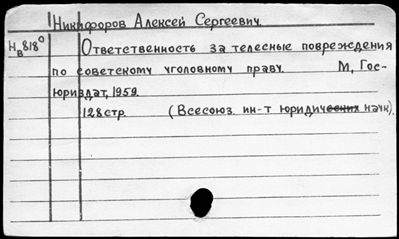 Никифоров Алексей Сергеевич.
Нв818⁰ Ответственность за телесные повреждения
по советскому уголовному праву. М, Гос-
юриздат, 1959.
128 стр. (Всесоюз. ин-т юридических наук).